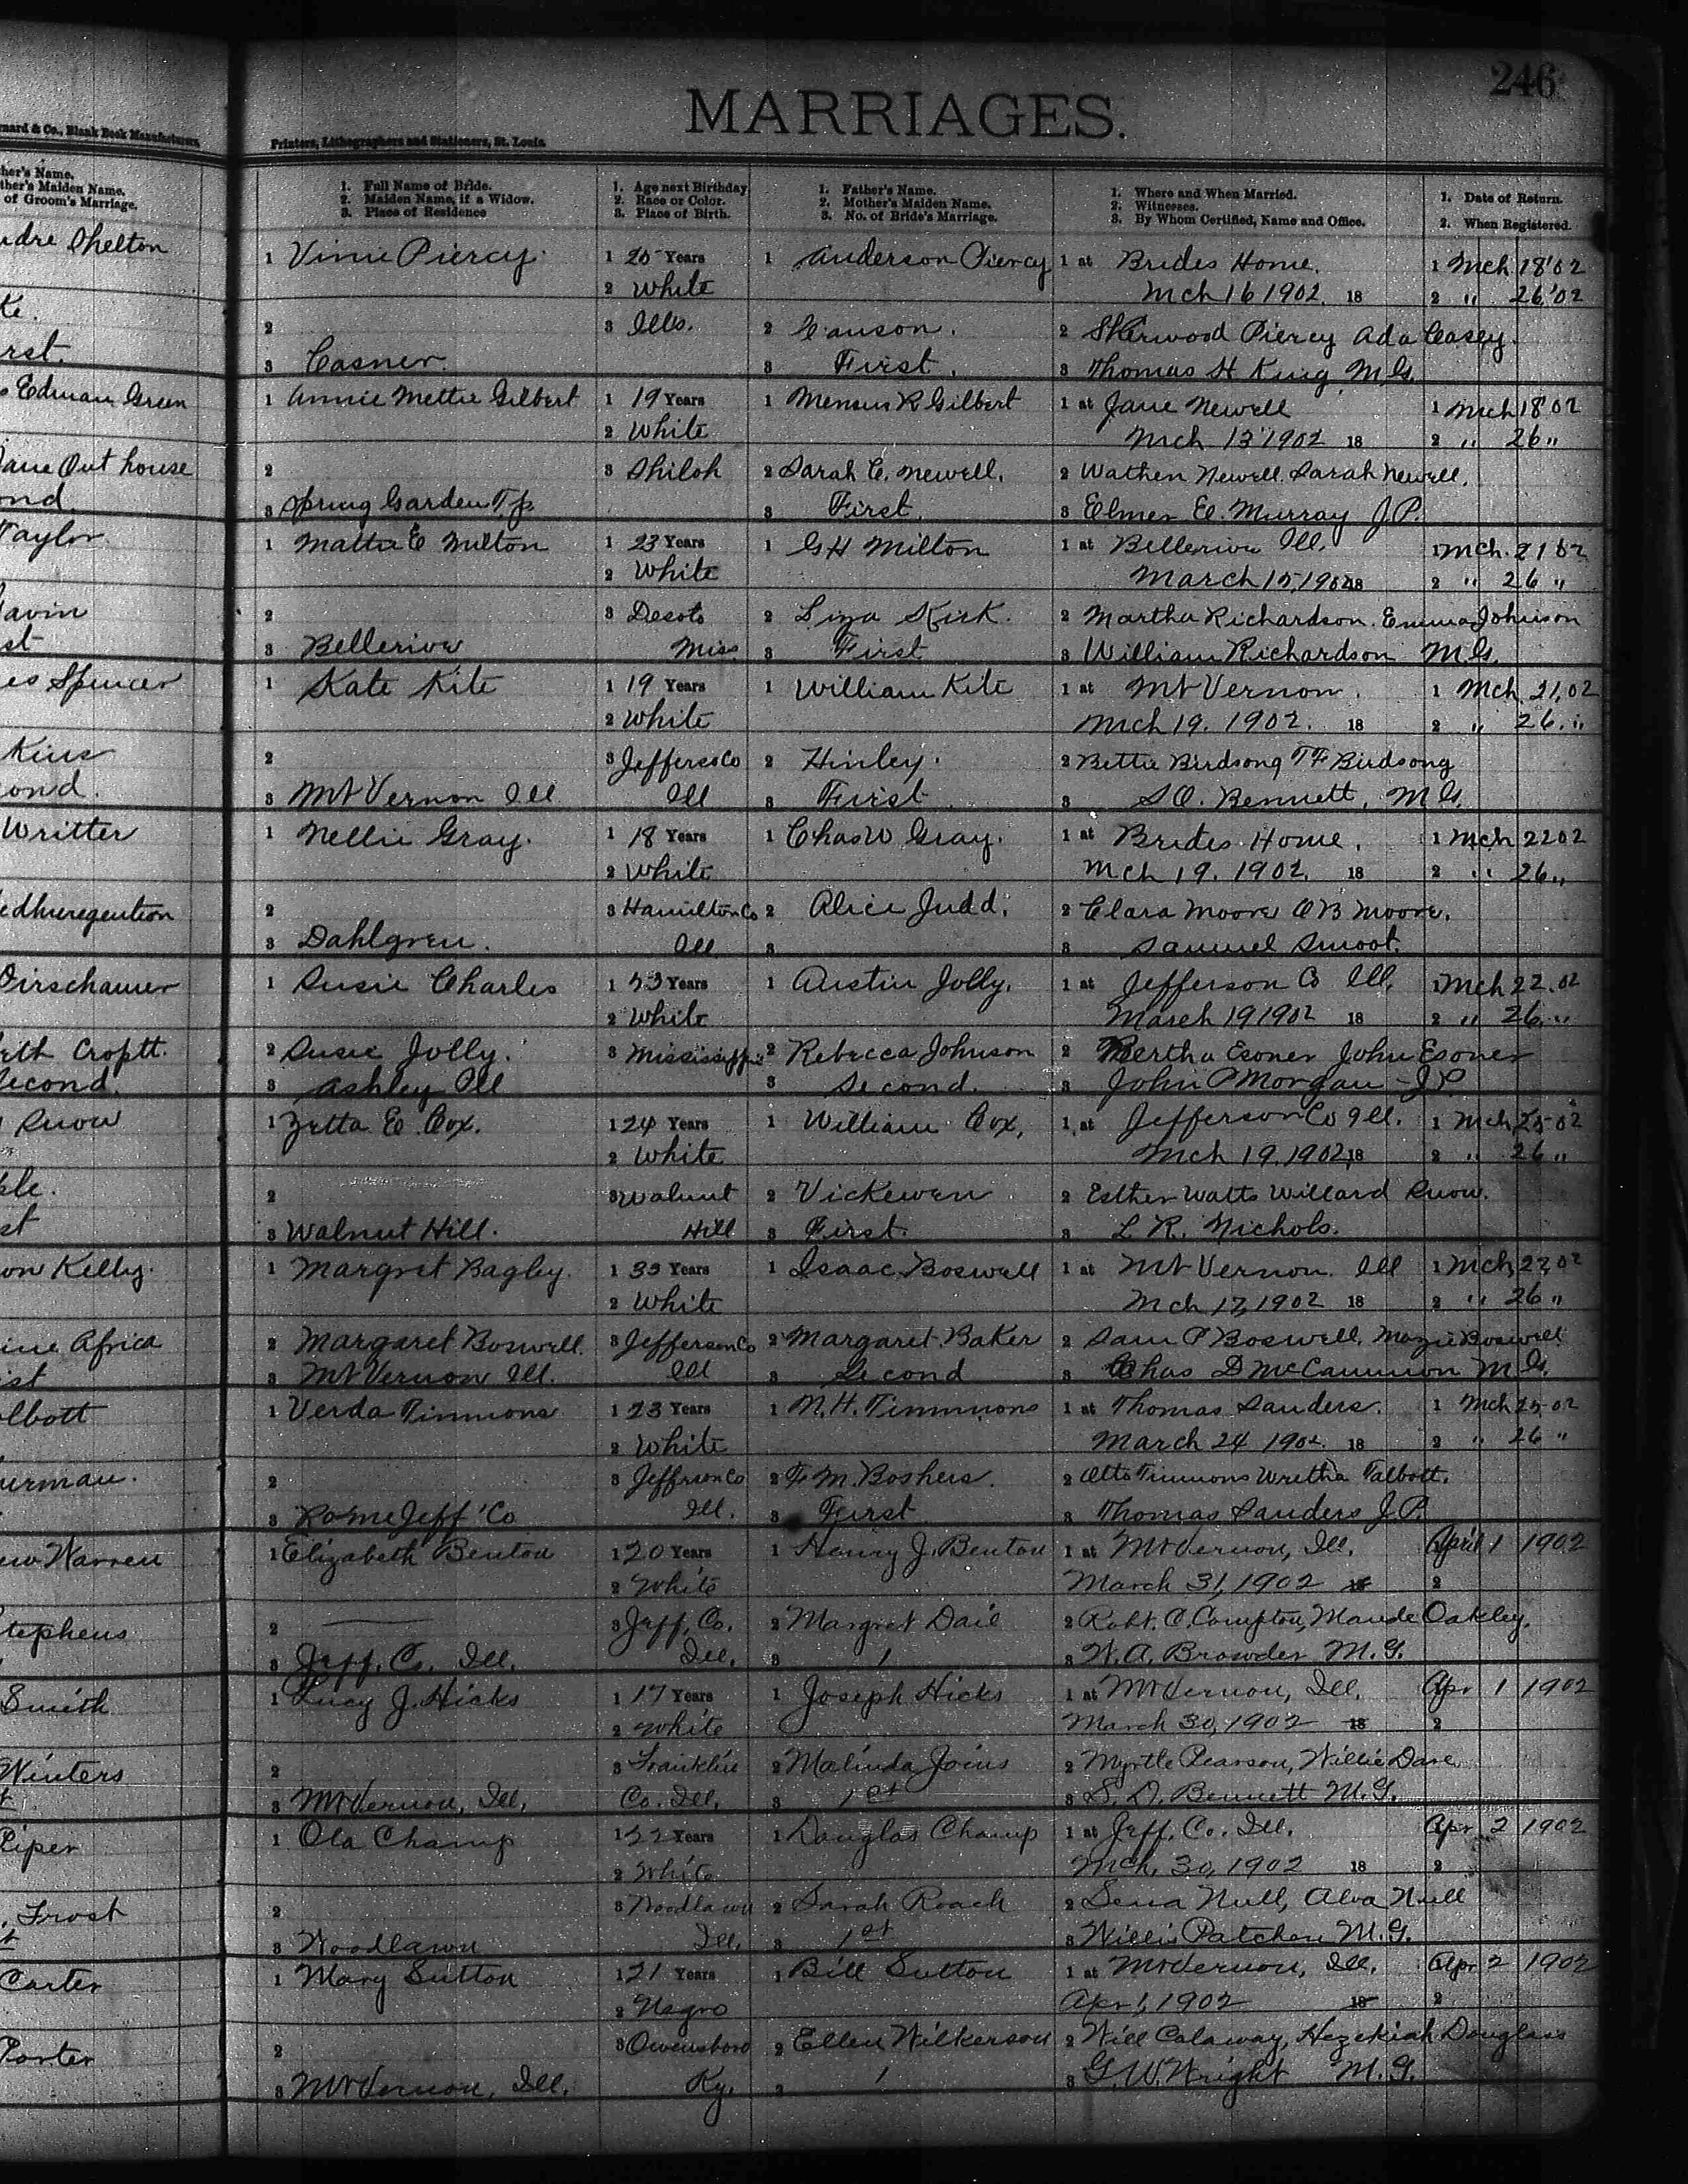 246
MARRIAGES.
nard & Co., Blank Book Manufacturers,
Printers, Lithographers and Stationers, St. Louis.
her's Name.
ther's Maiden Name.
of Groom's Marriage.
1. Full Name of Bride.
2. Maiden Name, if a Widow.
3. Place of Residence
1. Age next Birthday
2. Race or Color.
3. Place of Birth.
1. Father's Name.
2. Mother's Maiden Name.
3. No. of Bride's Marriage.
1. Where and When Married.
2. Witnesses.
3. By Whom Certified, Name and Office.
1. Date of Return.
2. When Registered.
dre Shelton
1 Vinie Piercy 1 20 Years 1 Anderson Piercy 1 at Brides Home. 1 Mch 18'02
2 White Mch 16 1902. 18 2 " 26,'02
2 3 Ills. 2 Causon. 2 Sherwood Piercy Ada Casey.
rst. 3 Casner. 3 First. 3 Thomas H King M.G.
Edman Green 1 Annie Mettie Gilbert 1 19 Years 1 Mensus R Gilbert 1 at Jane Newell 1 Mch 18 02
2 White Mch 13 1902 18 2 " 26 "
ane Out house 2 3 Shiloh 2 Sarah C. Newell. 2 Wathen Newell. Sarah Newell.
ond 3 Spring Garden T.p. 3 First. 3 Elmer E. Murray J.P.
Taylor 1 Mattie E Milton 1 23 Years 1 G H Milton 1 at Bellerive Ill. 1 Mch. 21 02
2 White March 15, 1902 18 2 " 26 "
avin 2 3 Desoto 2 Liza Kirk. 2 Martha Richardson. Emma Johnson
st 3 Bellerive Miss. 3 First 3 William Richardson M.G.
es Spencer 1 Kate Kite 1 19 Years 1 William Kite 1 at Mt Vernon. 1 Mch 21, 02
2 White Mch 19. 1902. 18 2 " 26. "
Kins 2 3 Jefferso Co 2 Hinley. 2 Bettie Birdsong T F Birdsong
ond. 3 Mt Vernon Ill Ill 3 First 3 S O. Bennett, M G.
Writter 1 Nellie Gray. 1 18 Years 1 Chas W Gray. 1 at Brides Home. 1 Mch 22 02
2 White Mch 19. 1902. 18 2 " 26 "
2 3 Hamilton Co 2 Alice Judd. 2 Clara Moore O B Moore.
3 Dahlgren. Ill 3 3 Samuel Smoot.
Dirschauer 1 Susie Charles 1 53 Years 1 Austin Jolly. 1 at Jefferson Co Ill. 1 Mch 22. 02
2 White March 19 1902 18 2 " 26. "
eth Croptt. 2 Susie Jolly. 3 Mississippi 2 Rebecca Johnson 2 Bertha Esoner John Esoner
Second. 3 Ashley Ill 3 Second. 3 John P Morgan - J P
Snow 1 Zetta E. Cox. 1 24 Years 1 William Cox, 1 at Jefferson Co Ill. 1 Mch 25 02
2 White Mch 19. 1902, 18 2 " 26 "
ble. 2 3 Walnut 2 Vickewen 2 Esther Watts Willard Snow.
st 3 Walnut Hill. Hill 3 First. 3 L R. Nichols.
on Kelley. 1 Margret Bagley. 1 35 Years 1 Isaac Boswell 1 at Mt Vernon. Ill 1 Mch, 22, 02
2 White Mch 17, 1902 18 2 " 26 "
ine Africa 2 Margaret Boswell 3 Jefferson Co 2 Margaret Baker 2 Sam P Boswell, Mazie Boswell
ist 3 Mt Vernon Ill. Ill 3 Second 3 Chas D McCammon M.G.
lbott 1 Verda Timmons 1 23 Years 1 N. H. Timmons 1 at Thomas Sanders. 1 Mch 25-02
2 White March 24 1902. 18 2 " 26 "
erman. 2 3 Jefferson Co 2 F. M. Boshers. 2 Otto Timmons Wretha Talbott.
3 Rome Jeff' Co Ill. 3 First 3 Thomas Sanders J.P.
ew Warren 1 Elizabeth Benton 1 20 Years 1 Henry J. Benton 1 at Mt Vernon, Ill. April 1 1902
2 White March 31, 1902 18 2
tephens 2 3 Jeff. Co. 2 Margret Dail 2 Robt. C. Compton, Maude Oakley.
3 Jeff. Co. Ill. Ill. 3 1 3 W. A. Browder M.G.
Smith 1 Lucy J. Hicks 1 17 Years 1 Joseph Hicks 1 at Mt Vernon, Ill. Apr 1 1902
2 White March 30, 1902 18 2
Winters 2 3 Franklin 2 Malinda Joins 2 Myrtle Pearson, Willie Dare
t 3 Mt Vernon, Ill, Co. Ill, 3 1st 3 S. O. Bennett M.G.
Piper 1 Ola Champ 1 22 Years 1 Douglas Champ 1 at Jeff. Co. Ill. Apr 2 1902
2 White Mch. 30, 1902 18 2
Frost 2 3 Woodlawn 2 Sarah Roach 2 Sena Null, Alva Null
t 3 Woodlawn Ill. 3 1st 3 Willis Patchen M.G.
Carter 1 Mary Sutton 1 21 Years 1 Bill Sutton 1 at Mt Vernon, Ill. Apr 2 1902
2 Negro Apr 1, 1902 18 2
Porter 2 3 Owensboro 2 Ellen Wilkerson 2 Will Calaway, Hezekiah Douglass
3 Mt Vernon, Ill. Ky. 3 1 3 G. W. Wright M.G.